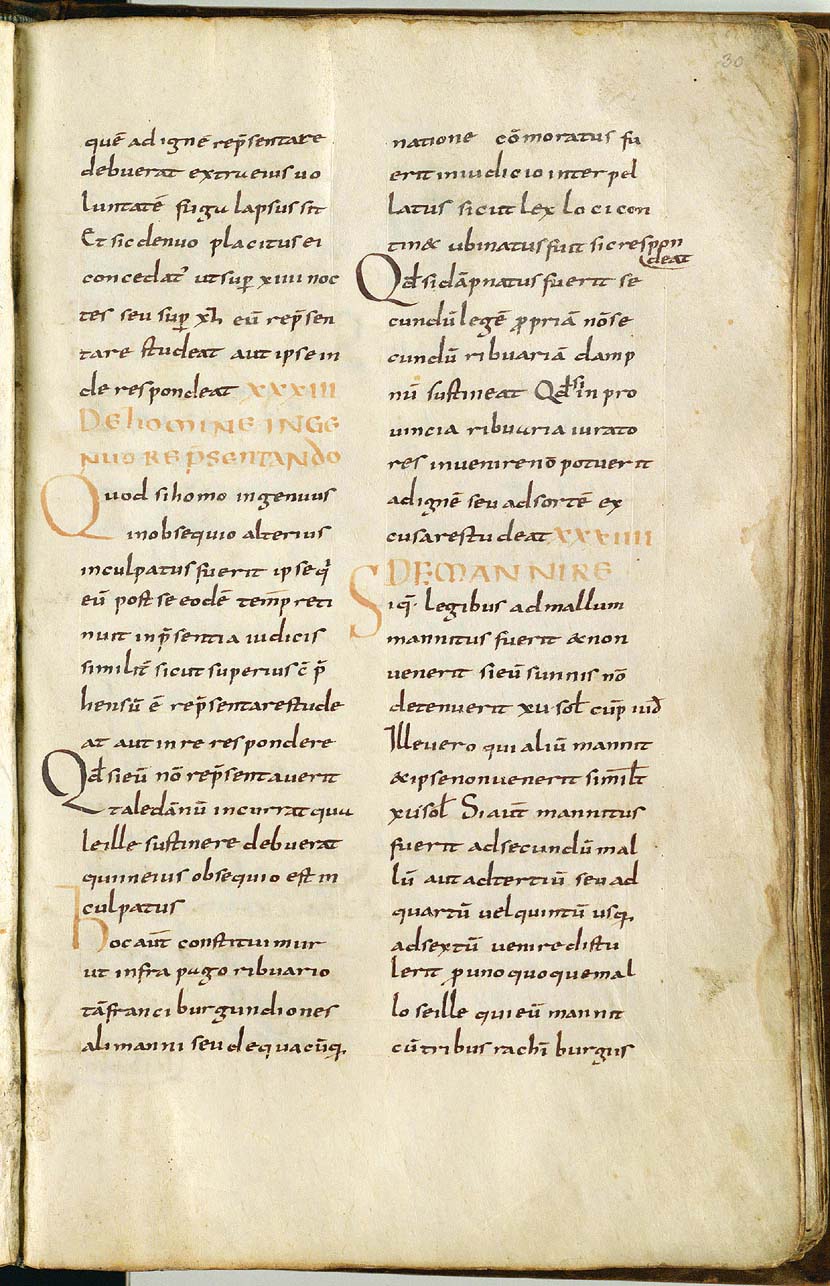 30
quē ad ignē rep̄sentare
debuerat extru eius uo
luntatē fugu lapsus sit
Et sic denuo placitus ei
concedat᷎ ut sup̱ xiiii noc
tes seu sup̱ xl eū rep̄sen
tare studeat aut ipse in
de respondeat XXXIII
DE hOMINE INGE
NUO REP̄SENTANDO
Quod si homo ingenuus
in obsequio alterius
inculpatus fuerit ipse q͛
eū post se eodē temp̄ reti
nuit in p̄sentia iudicis
similit̄ sicut superius c̄ p̄
hensū ē rep̄sentare stude
at aut in re respondere
Qđ si eū nō rep̄sentauerit
tale dānū incurrat qua
le ille sustinere debuerat
qui in eius obsequio est in
culpatus
hoc aut̄ constituimur
ut infra pago ribuario
tā franci burgundiones
alimanni seu de quacūq,
natione cōmoratus fu
erit in iudicio interpel
latus sicut lex loci con
tin& ubi natus fuit sic respon
deat
Qđ si dāpnatus fuerit se
cundū legē ꝓpriā nō se
cundū ribuariā damp
nū sustineat Qđ si in pro
uincia ribuaria iurato
res inuenire nō potuerit
ad ignē seu ad sortē ex
cusare studeat XXXIIII
DE MANNIRE
Siq̄s legibus ad mallum
mannitus fuerit & non
uenerit si eū sunnis nō
detenuerit xv sol cūp̄ iuđ
Ille uero qui aliū mannit
& ipse non uenerit similt̄
xv sol Si aut̄ mannitus
fuerit ad secundū mal
lū aut ad tertiū seu ad
quartū uel quintū usq,
ad sextū uenire distu
lerit p̱ unoquoque mal
lo se ille qui eū mannit
cū tribus rachī burgus